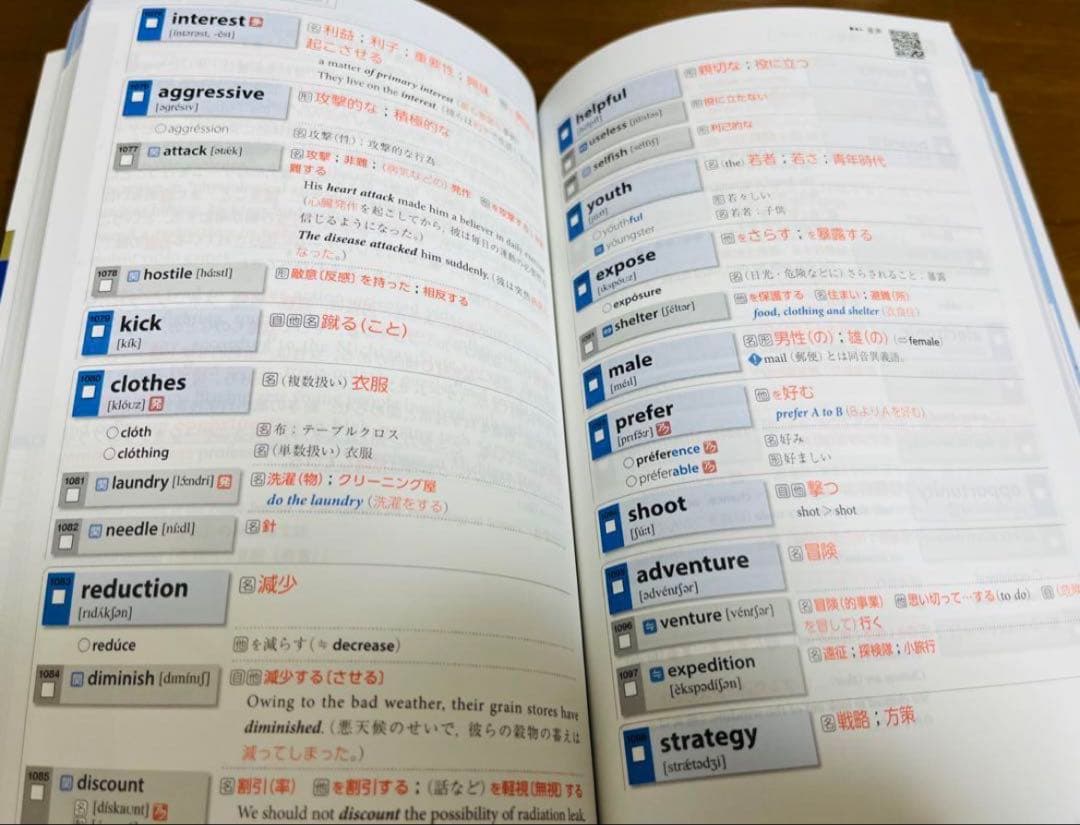 interest 発
名 利益；利子；重要性；興味
起こさせる
a matter of primary interest
They live on the interest
aggressive
[əgrésiv]
形 攻撃的な；積極的な
○aggréssion
名 攻撃(性)；攻撃的な行為
1077 関 attack [ətǽk]
名 攻撃；非難；(病気などの)発作 他 を攻撃する
難する
His heart attack made him a believer in daily
(心臓発作を起こしてから，彼は毎日の運動の
信じるようになった。)
The disease attacked him suddenly. (彼は突然
なった。)
1078 関 hostile [hɑ́ːstl]
形 敵意〔反感〕を持った；相反する
1079
kick
[kík]
自他名 蹴る(こと)
1080
clothes
[klóuz] 発
名 (複数扱い) 衣服
○clóth
名 布；テーブルクロス
○clóthing
名 (単数扱い) 衣服
1081 関 laundry [lɔ́ːndri] 発
名 洗濯(物)；クリーニング屋
do the laundry (洗濯をする)
1082 関 needle [níːdl]
名 針
1083
reduction
[rɪdʌ́kʃən]
名 減少
○redúce
他 を減らす(≒ decrease)
1084 関 diminish [dɪmínɪʃ]
自他 減少する〔させる〕
Owing to the bad weather, their grain stores have
diminished. (悪天候のせいで，彼らの穀物の蓄えは
減ってしまった。)
1085 関 discount
名 [dískaʊnt] ア
名 割引(率) 他 を割引する；(話など)を軽視〔無視〕する
We should not discount the possibility of radiation leak.
helpful
形 親切な；役に立つ
useless [júːsləs]
形 役に立たない
selfish [sélfɪʃ]
形 利己的な
youth
[júːθ]
名 (the) 若者；若さ；青年時代
○youthful
形 若々しい
youngster
名 若者；子供
expose
[ɪkspóuz]
他 をさらす；を暴露する
○expósure
名 (日光・危険などに)さらされること；暴露
shelter [ʃéltər]
他 を保護する 名 住まい；避難(所)
food, clothing and shelter (衣食住)
male
[méɪl]
名形 男性(の)；雄(の) (⇔ female)
mail (郵便) とは同音異義語。
prefer
[prɪfə́ːr] ア
他 を好む
prefer A to B (BよりAを好む)
○préference ア
名 好み
○préferable ア
形 好ましい
shoot
[ʃúːt]
自他 撃つ
shot > shot
adventure
[ədvéntʃər]
名 冒険
1096 venture [véntʃər]
名 冒険(的事業) 他 思い切って…する(to do) 自 (危険
を冒して)行く
1097 expedition
[èkspədíʃən]
名 遠征；探検隊；小旅行
strategy
[strǽtədʒi]
名 戦略；方策